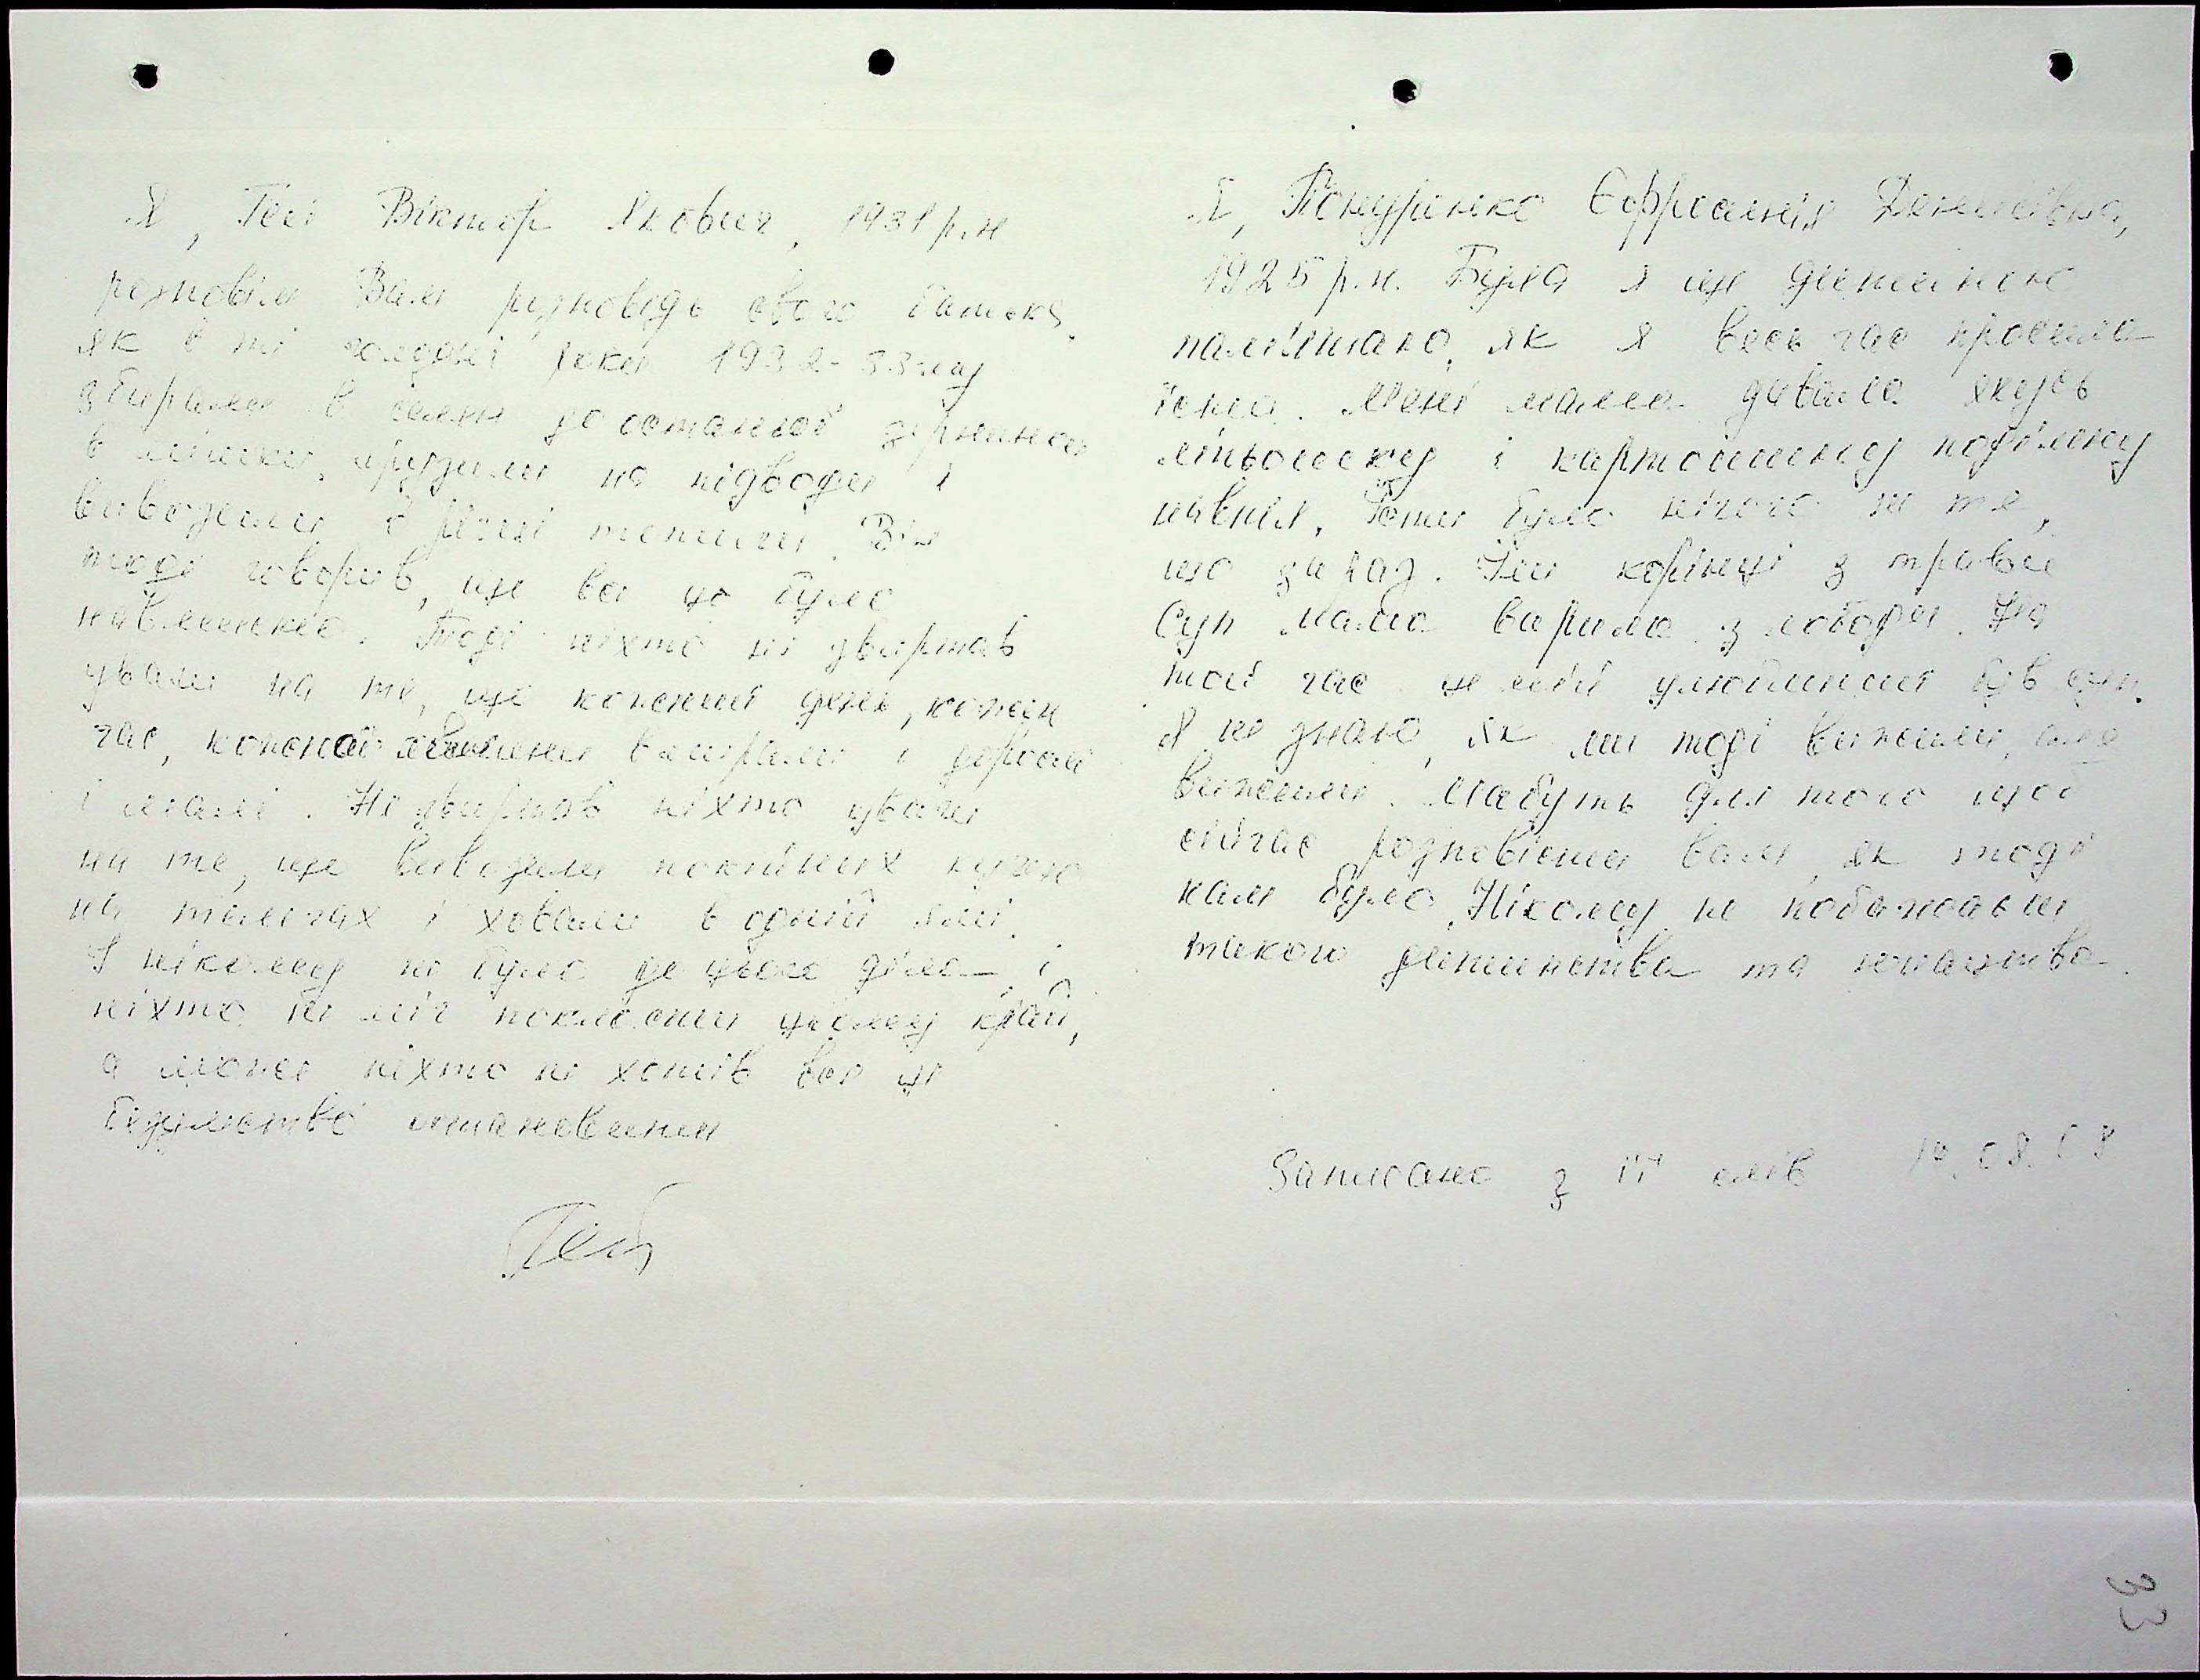 Я, Гей Віктор Якович, 1931 р.н
розповім Вам розповідь свого батька,
як в ті голодні роки 1932-33му
збирали в селян до останньої зернини
в мішки, грузили на підводи і
вивозили в річці топили. Він
тоді говорив, що все це було
навмисне. Тоді ніхто не звертав
уваги на те, що кожний день, кожен
час, кожної хвилини вмирали і дорослі
і малі. Не звертав ніхто уваги
на те, що вивозили покійних кучею
на тачках і ховали в одній ямі.
І нікому не було до цього діла і
ніхто не міг покласти цьому край,
а може ніхто не хотів все це
безумство остановити
Гей
Я, Єфросинія Денисівна,
1925 р.н. Була я ще дитиною
пам'ятаю, як я весь час просила
їсти. Мені мама давала якусь
і картошину поділену
навпіл. Їсти було нічого не те,
що зараз. Їли корінці з трави
Суп мама варила з лободи. На
той час це мій улюблений був суп.
Я не знаю, як ми тоді вижили, але
вижили. Мабуть для того щоб
сейчас розповісти вам, як тоді
нам було. Нікому не побажаєш
такого дитинства та юнацтва.
Записано з її слів 10.08.08
33